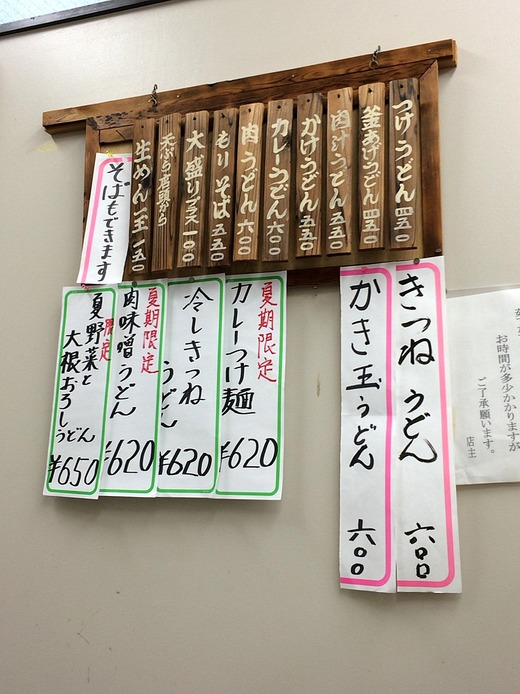 つけうどん 四五〇
釜あげうどん 四五〇
肉汁うどん 五五〇
かけうどん 五五〇
カレーうどん 六〇〇
肉うどん 六〇〇
もりそば 五五〇
大盛りプラス 一〇〇
天ぷら店頭から
生めん一玉 一五〇
そばもできます
きつねうどん 六〇〇
かき玉うどん 六〇〇
夏期限定
カレーつけ麺
¥620
冷しきつね
うどん
¥620
夏期限定
肉味噌うどん
¥620
限定
夏野菜と
大根おろし
うどん
¥650
お時間が多少かかりますが
ご了承願います。
店主